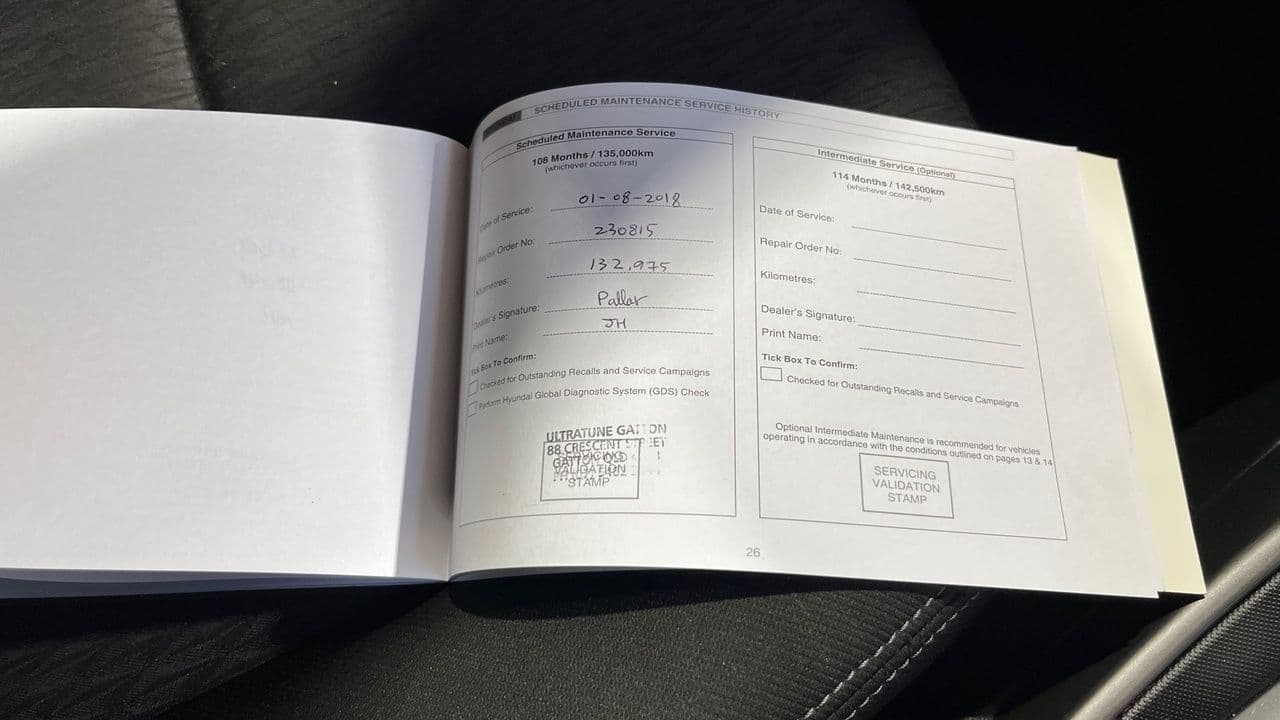 SCHEDULED MAINTENANCE SERVICE HISTORY
Scheduled Maintenance Service
108 Months / 135,000km
(whichever occurs first)
Date of Service: 01-08-2018
Repair Order No: 230815
Kilometres: 132,975
Dealer's Signature: Pallar
Print Name: JH
Tick Box To Confirm:
Checked for Outstanding Recalls and Service Campaigns
Perform Hyundai Global Diagnostic System (GDS) Check
ULTRATUNE GATTON
88 CRESCENT STREET
GATTON QLD
VALIDATION
STAMP
Intermediate Service (Optional)
114 Months / 142,500km
(whichever occurs first)
Date of Service:
Repair Order No:
Kilometres:
Dealer's Signature:
Print Name:
Tick Box To Confirm:
Checked for Outstanding Recalls and Service Campaigns
Optional Intermediate Maintenance is recommended for vehicles
operating in accordance with the conditions outlined on pages 13 & 14
SERVICING
VALIDATION
STAMP
26